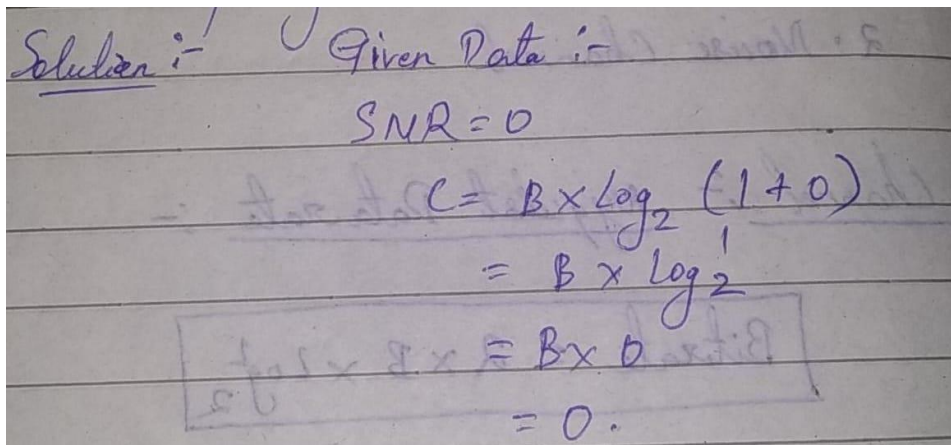 Solution :- Given Data :-
SNR = 0
C = B × Log₂ (1 + 0)
= B × Log₂ 1
= B × 0
= 0.